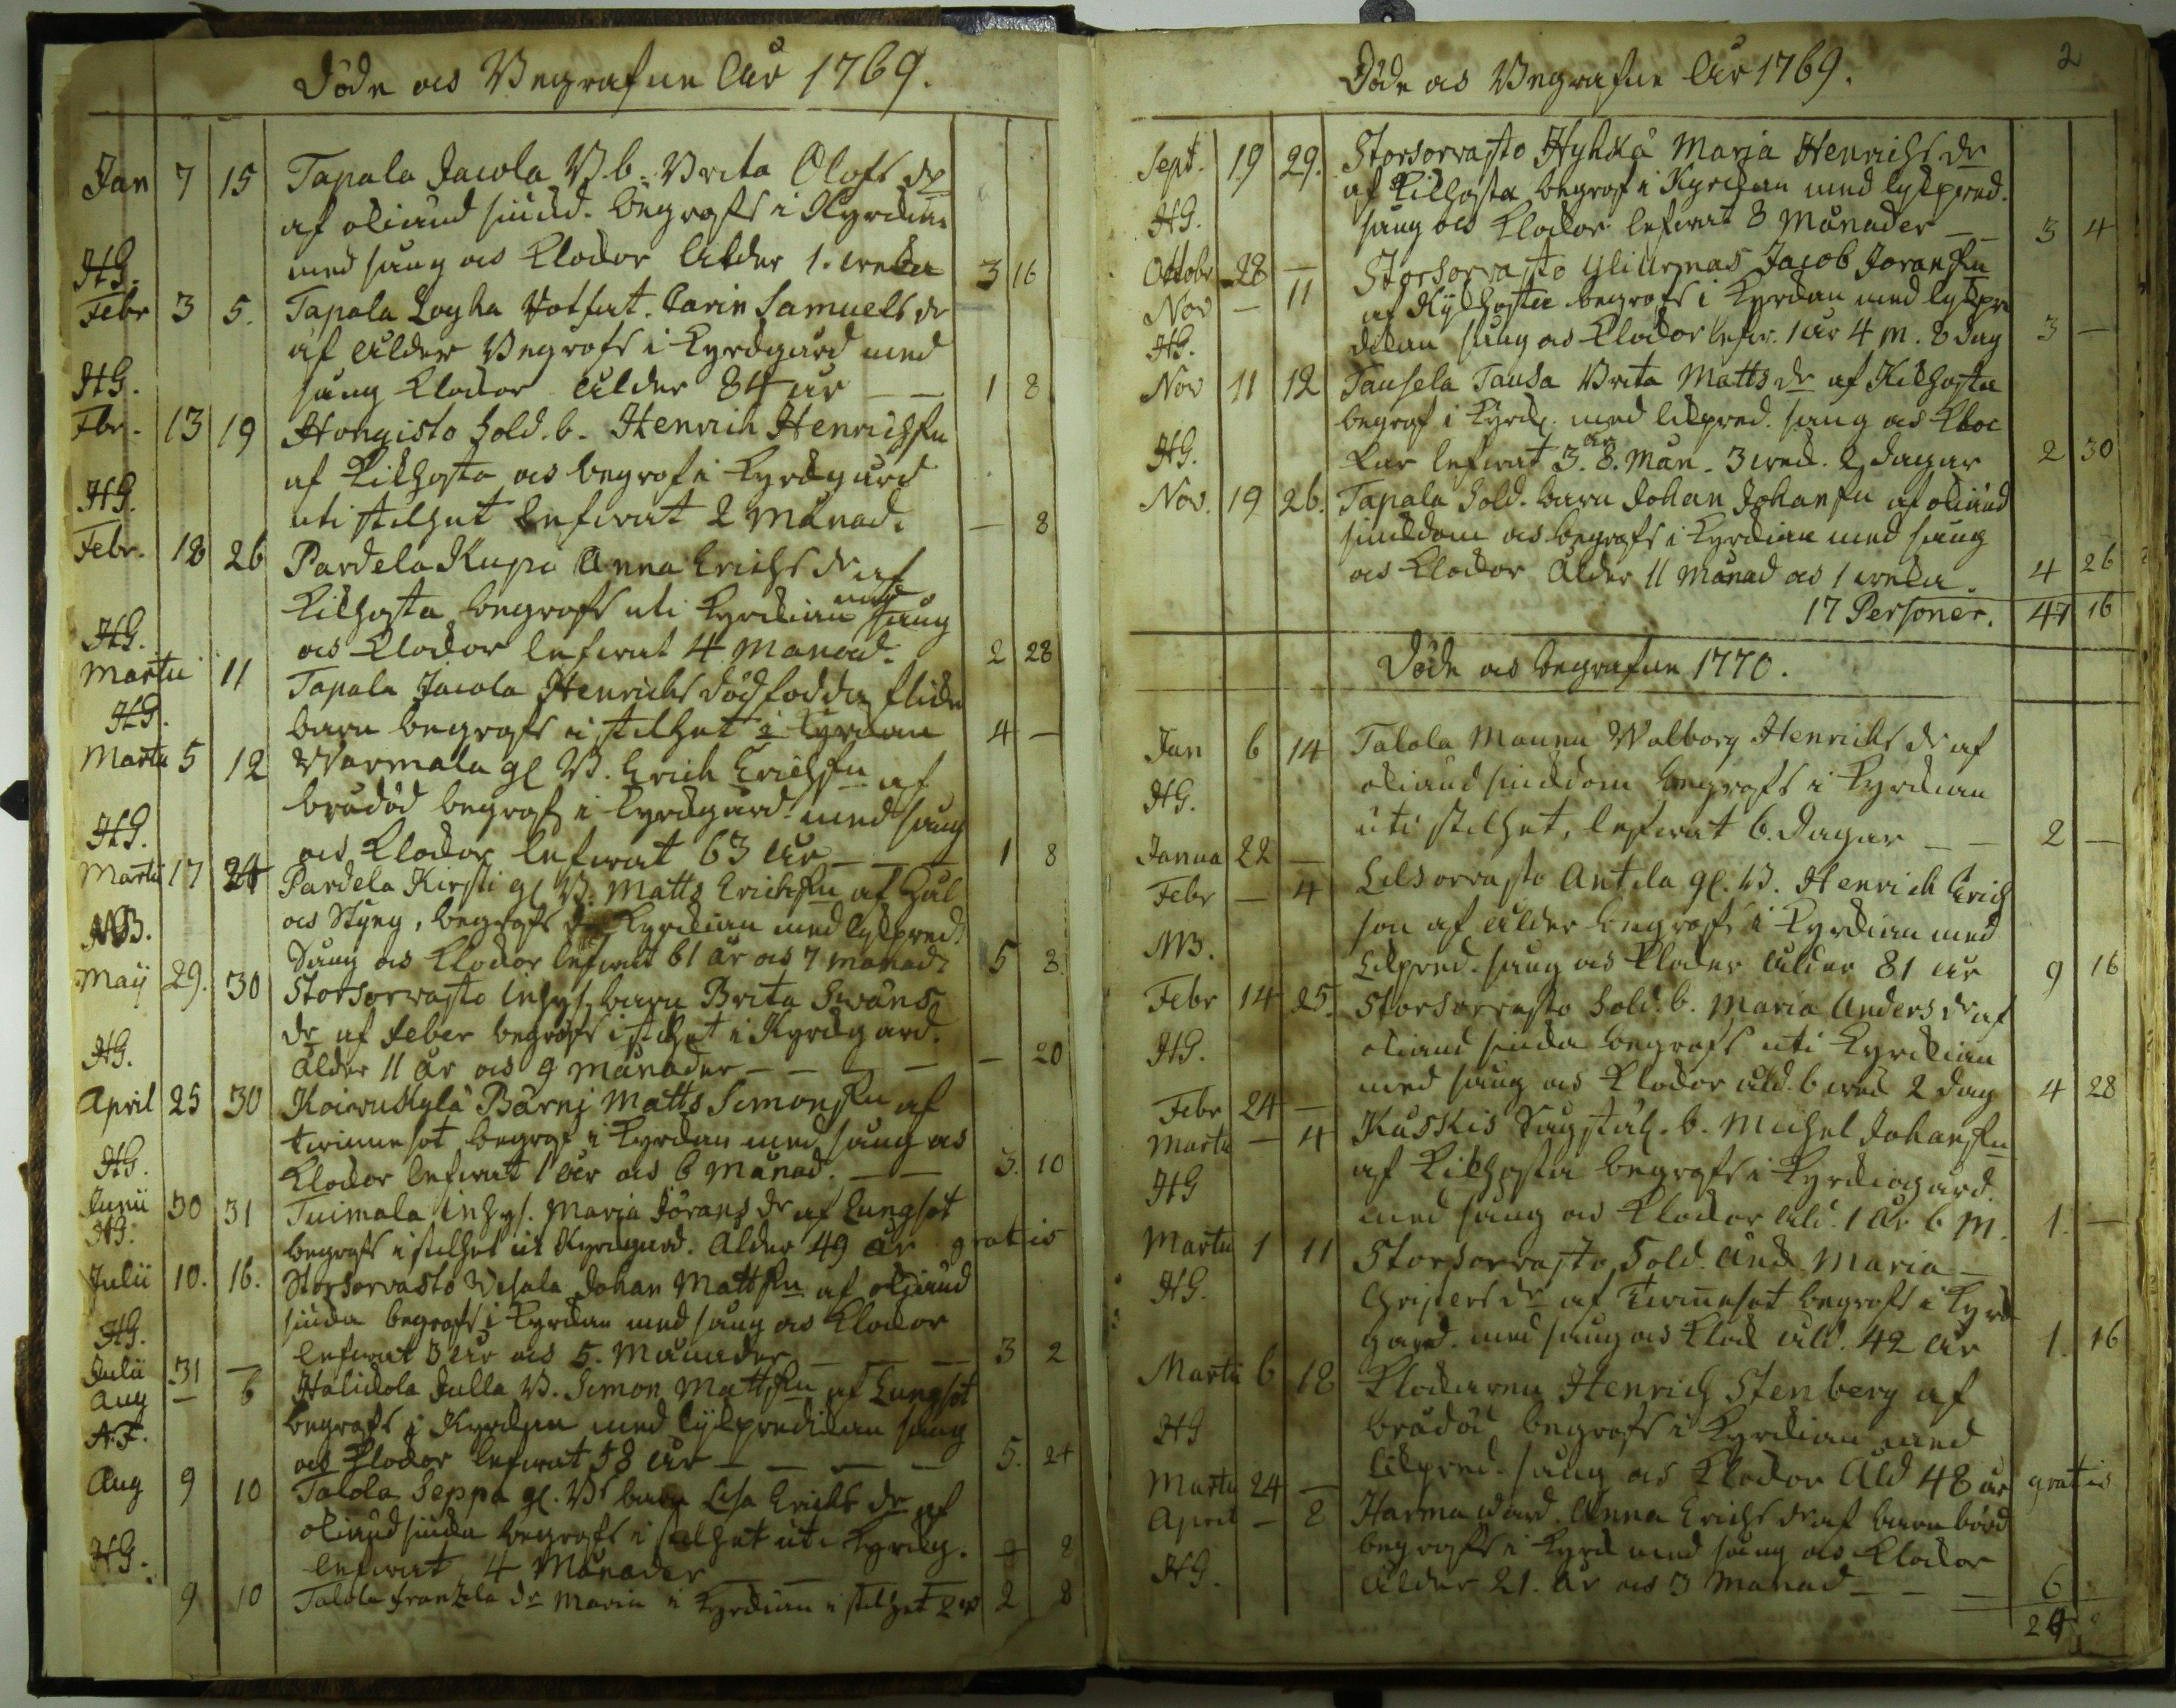 Döde och Begrafne Åhr 1769.
Jan 7 15 Tapala Jacola B. b. Brita Olofs dr
af okiänd siukd. begrofs i Kyrckian
HG. med sång och Klockor ålder 1. wecka 3 16
Febr 3 5. Tapala Loyha Carin Samuels dr
af ålder Begrofs i Kyrckgård med
HG. sång Klockor ålder 84 år 1 8
Fbr. 13 19 Hongisto Sold. b. Henrich Henrichsn
af Kikhosta och begrof i Kyrckgård
HG. uti stilhet lefwat 2 månad. — 8
Febr. 18 26 Pardela Kupi Anna Erichs dr af
Kikhosta begrofs uti Kyrckian med sång
HG. och Klockor lefwat 4 månad. 2 28
Martii 11 Tapala Jacola Henrichs dödfödda flicke
HG. barn begrofs i stilhet i Kyrckan 4 —
Martii 5 12 Warmala gl B. Erich Erichsn af
brådöd begrof i Kyrckgård med sång
HG. och Klockor lefwat 63 år 1 8
Martii 17 24 Pardela Kirsti gl B. Matts Erichsn af Hål
och Styng, begrofs i Kyrckian med lykpred.
NB. Sång och Klockor lefwat 61 år och 7 månad. 5 8.
Maij 29. 30 Storsorvasto Inhys barn Brita Swäns
dr af feber begrofs i stilhet i Kyrckgård.
HG. Ålder 11 år och 9 månader — 20
April 25 30 Koivukylä Bärnj Matts Simonsn af
twinnesot begrof i Kyrckan med sång och
HG. Klockor lefwat 1 år och 6 månad. 3. 10
Junii 30 31 Tuimala Inhys. Maria Jörans dr af Lungsot
HG. begrofs i stilhet uti Kyrckgård. Ålder 49 år gratis
Julii 10. 16. Storsorvasto Wesala Johan Mattsn af okiänd
siuka begrofs i Kyrckan med sång och Klockor
HG. lefwat 3 år och 5. Månader 3 2
Julii 31 —
Aug — 6 Halickola Julla B. Simon Mattsn af Lungsot
begrofs i Kyrckan med lijkpredikan sång
A.F. och Klockor lefwat 58 år 5. 24
Aug 9 10 Talola Seppä gl. Bs barn Lisa Erichs dr af
okiänd siuka begrofs i stilhet uti Kyrckg.
HG. lefwat 4 Månader 8
9 10 Talola Franzila dr Maria i Kyrckian i stilhet 2 8
2
Döde och Begrafne Åhr 1769.
Sept. 19 29. Storsorvasto Hyhkä Maria Henrichs dr
af Kikhosta begrof i Kyrckan med lykpred.
HG. sång och Klockor lefwat 8 Månader 3 4
Octobr 28 — Storsorvasto Jacob Joransn
Nov — 11 af Kijkhosta begrofs i Kyrckan med lykpre
HG. dikan sång och Klockor lefw. 1 år 4 m. 8 dag 3 —
Nov 11 12 Tausela Tausa Brita Matts dr af Kikhosta
begrof i Kyrck. med likpred. sång och Kloc
HG. kor lefwat 3. år 8. Mån. 3 weck. 2 dagar 2 30
Nov. 19 26. Tapala Sold. barn Johan Johansn af okiänd
siukdom och begrofs i Kyrckian med sång
och Klockor Ålder 11 Månad och 1 wecka. 4 26
17 Personer. 47 16
Döde och begrafne 1770.
Jan 6 14 Talola Mannu Walborg Henrichs dr af
HG. okiänd siukdom begrofs i Kyrckian
uti stilhet, lefwat 6. Dagar 2 —
Janua 22 —
Febr — 4 Lilsorvasto Antila gl. B. Henrich Erich
son af ålder begrofs i Kyrckian med
NB. Likpred. sång och Klockor ålder 81 år 9 16
Febr 14 25. Storsorvasto Sold. b. Maria Anders dr af
HG. okiänd siuka begrofs uti Kyrckian
med sång och Klockor åld. 6 weck 2 dag 4 28
Febr 24 —
Martii — 4 Kuskis Sagstäl. b. Michel Johansn
HG af Kikhosta begrofs i Kyrckiogård.
med sång och Klockor åld. 1 år 6 M. 1. —
Martii 1 11 Storsorvasto Sold. Änck. Maria
HG. Christers dr af Twinnesot begrofs i Kyrck
gård. med sång och Klock åld. 42 år 1. 16
Martii 6 18 Klockaren Henrich Stenberg af
HG brådöd begrofs i Kyrckian med
likpred. sång och Klockor Åld 48 år gratis
Martii 24 —
April — 2 Harma Anna Erichs dr af barnbörd
begrofs i Kyrck med sång och Klockor
HG. Ålder 21. år och 3 månad 6
24